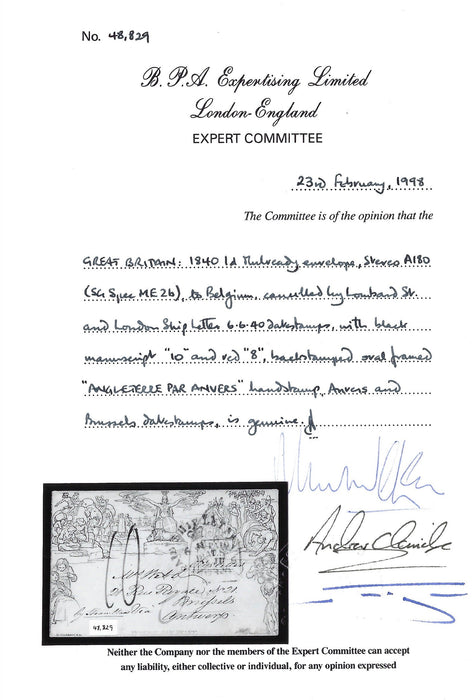 No. 48,829
B. P. A. Expertising Limited
London - England
EXPERT COMMITTEE
23rd February, 1998
The Committee is of the opinion that the
GREAT BRITAIN: 1840 1d Mulready envelope, Stereo A180
(SG Spec ME2b), to Belgium, cancelled by Lombard St.
and London Ship Letter 6.6.40 datestamps, with black
manuscript "10" and red "8", backstamped oval framed
"ANGLETERRE PAR ANVERS" handstamp, Anvers and
Brussels datestamps, is genuine.
10
Brussels
Antwerp
48,829
Neither the Company nor the members of the Expert Committee can accept
any liability, either collective or individual, for any opinion expressed